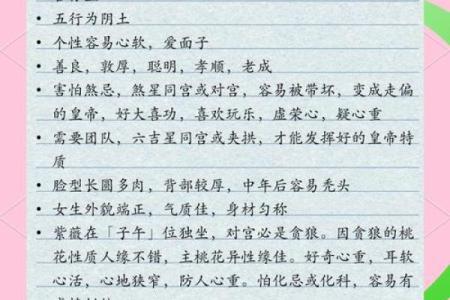 • 五行为阴土
• 个性容易心软，爱面子
• 善良，敦厚，聪明，孝顺，老成
• 害怕煞忌，煞星同宫或对宫，容易被带坏，变成走偏
的皇帝，好大喜功，喜欢玩乐，虚荣心，疑心重
• 需要团队，六吉星同宫或夹拱，才能发挥好的皇帝特
质
• 脸型长圆多肉，背部较厚，中年后容易秃头
• 女生外貌端正，气质佳，身材匀称
• 紫薇在「子午」位独坐，对宫必是贪狼。因贪狼的桃
花性质人缘不错，主桃花异性缘佳。好奇心重，耳软
心活，心地狭窄，防人心重。怕化忌或化科，容易有